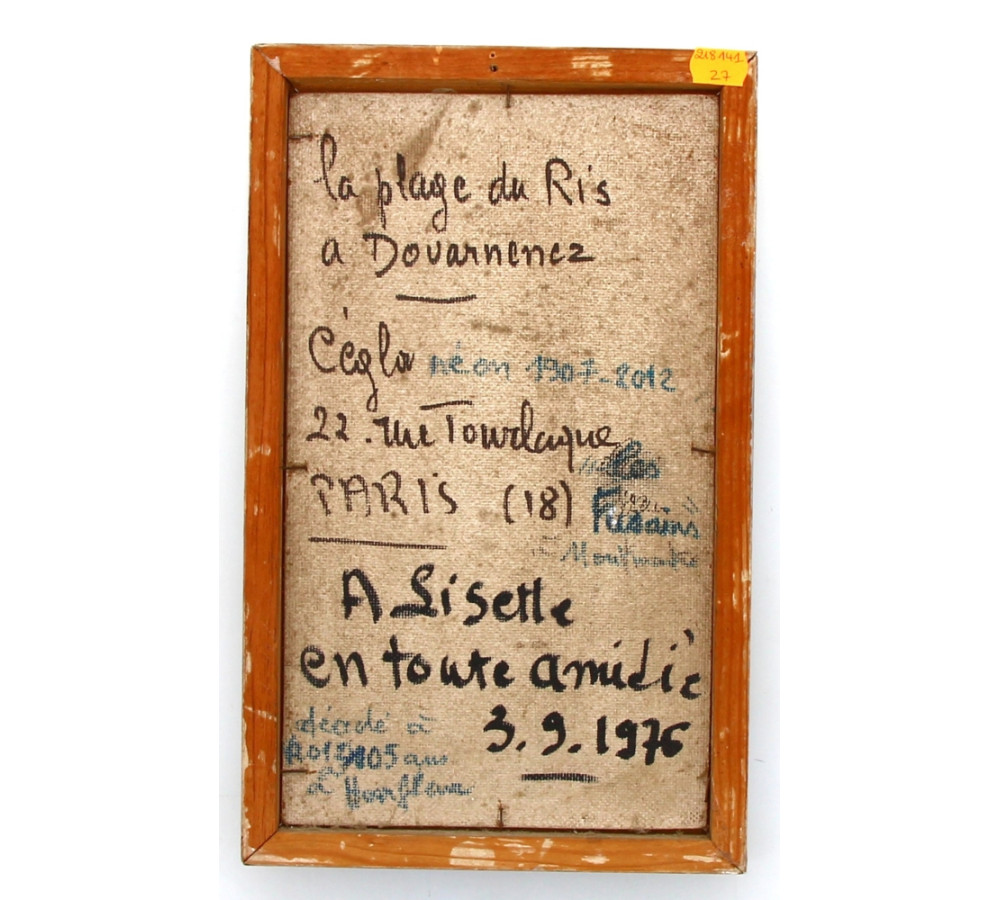 218141
27
la plage du Ris
a Douarnenez
Cégla né en 1907-2012
22 . rue Tourlaque
PARIS (18) Fusains
à Montmartre
A Lisette
en toute amitié
3.9.1976
décédé à
105 ans
à Honfleur